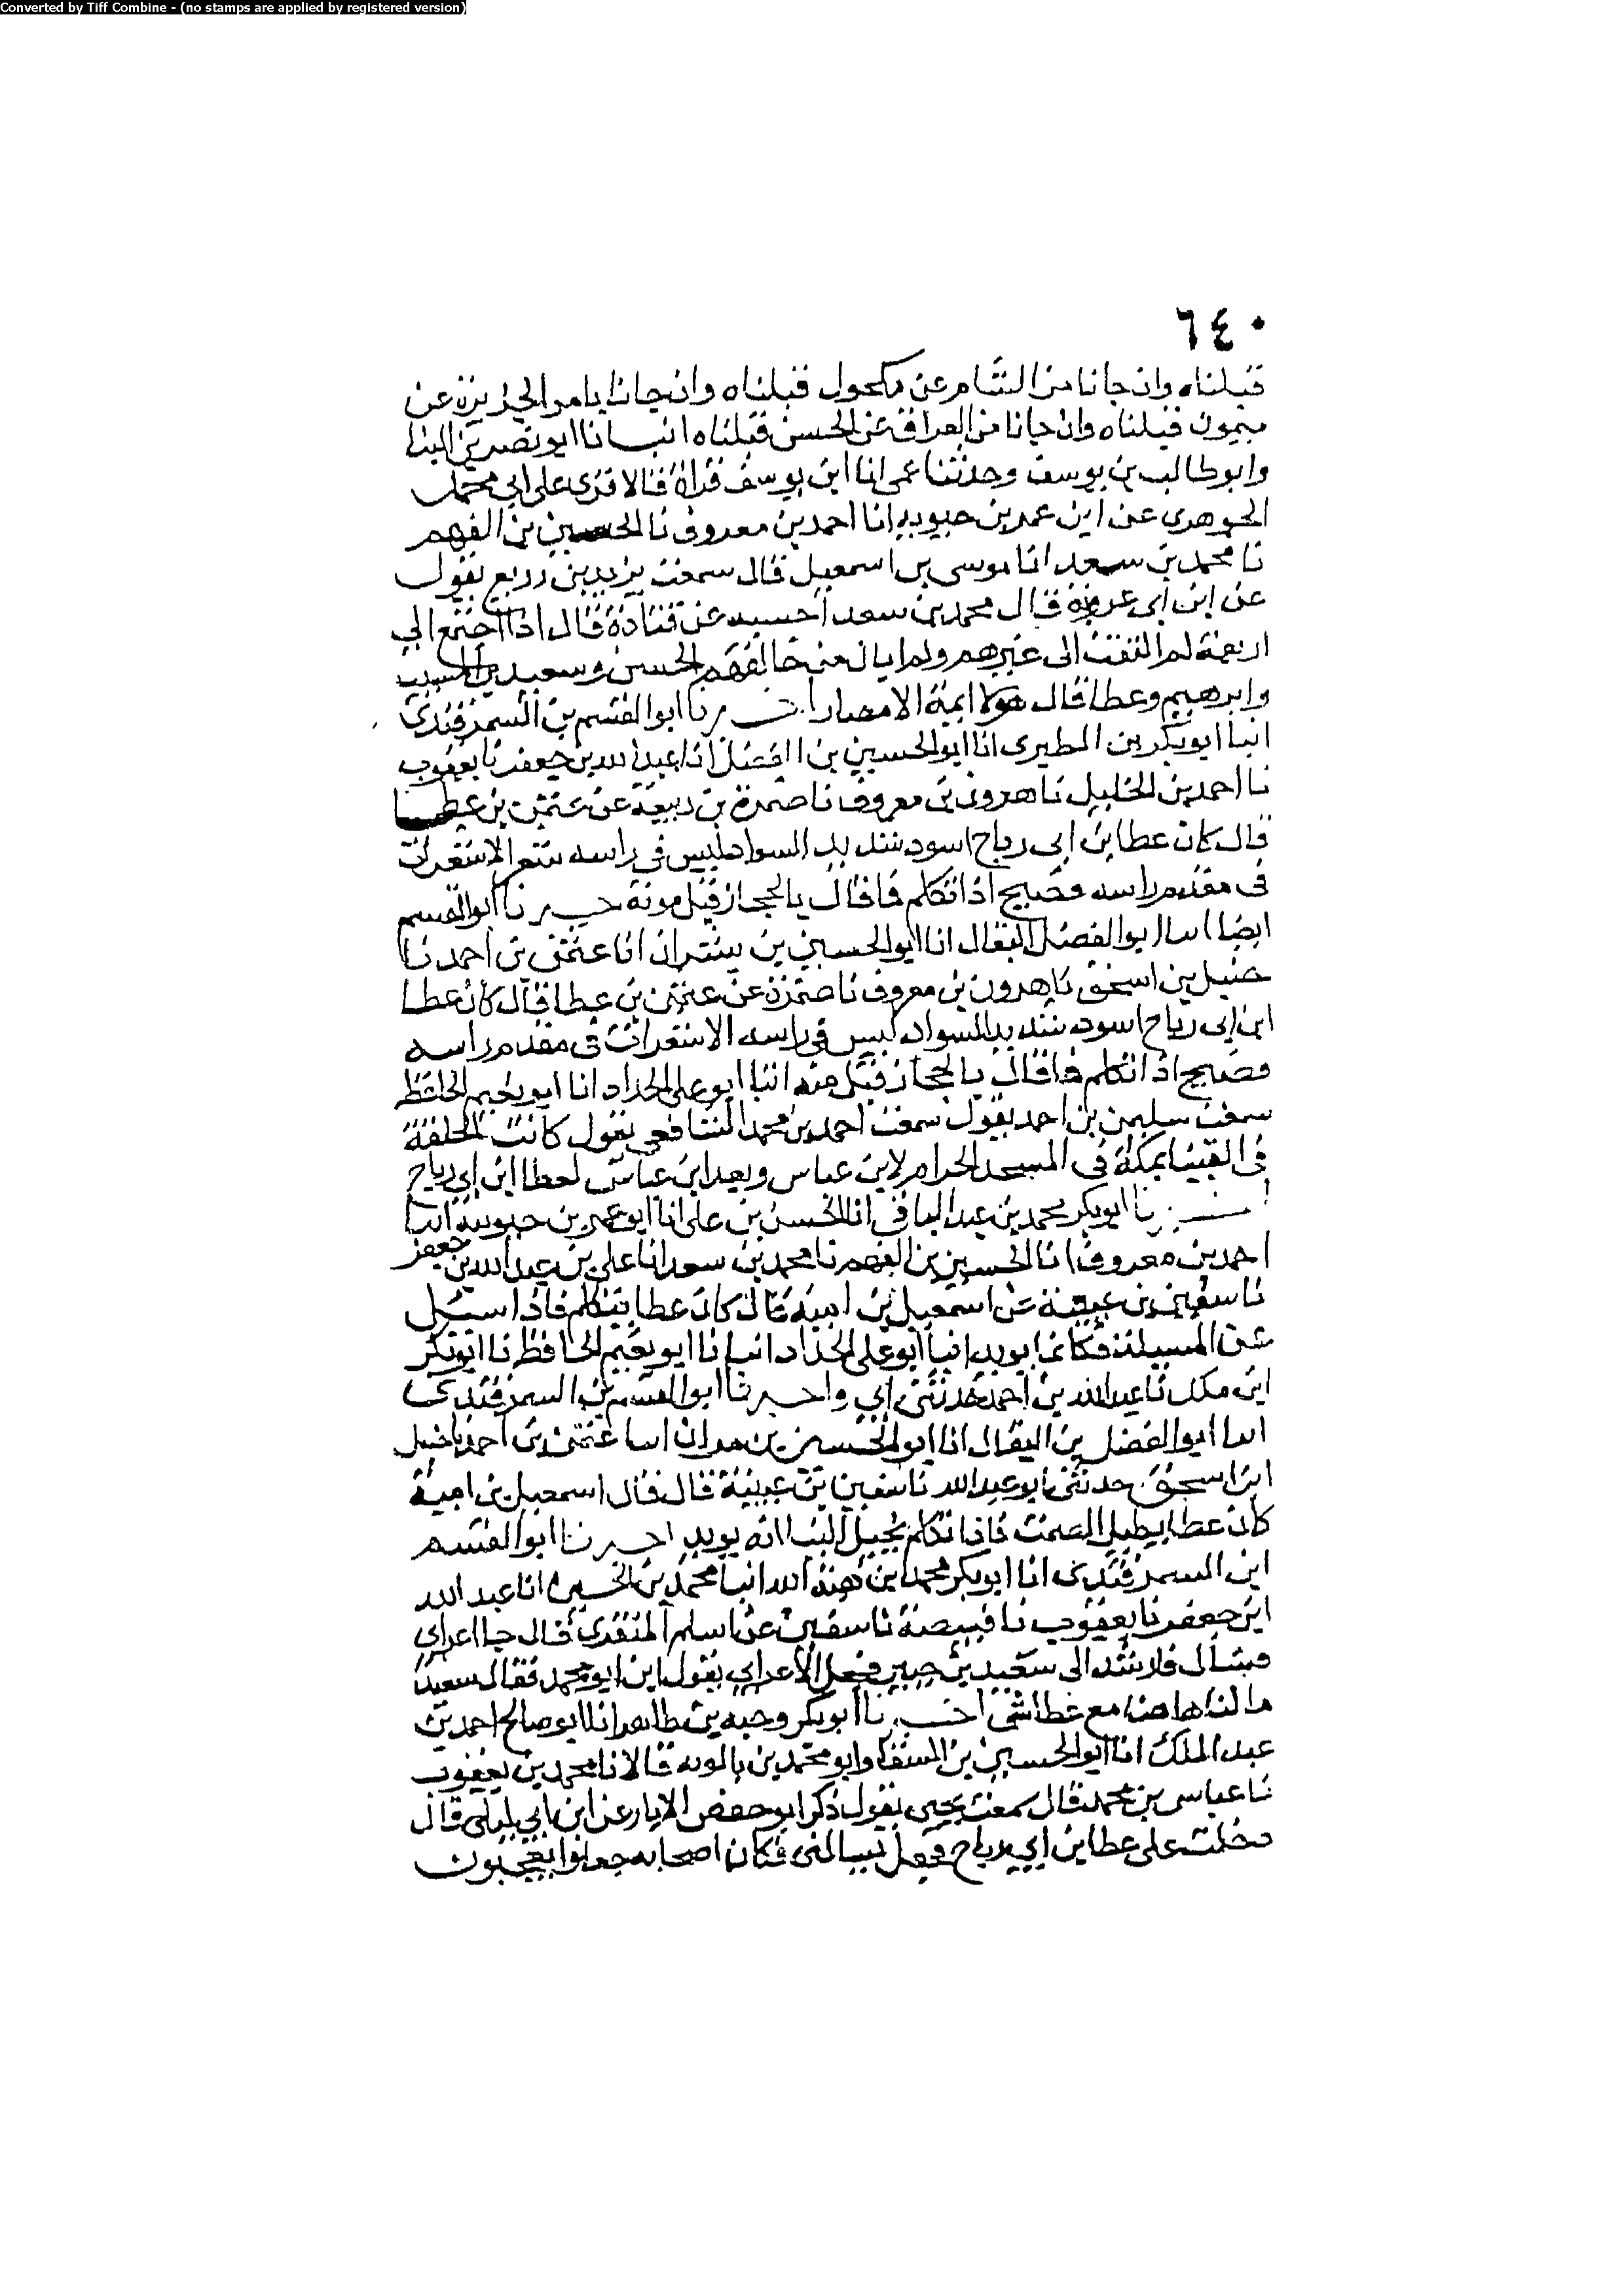 Converted by Tiff Combine - (no stamps are applied by registered version)
٦٤٠
قبلناه وان جانا من الشام عن مكحول قبلناه وان جانا يا من الجزيرة عن
ميمون قبلناه وان جانا من العراق عن الحسن قبلناه انبانا ابو نصر بن البنا
وابو طالب بن يوسف وحدثنا عمي انا ابن يوسف قراة قالا قرى على ابي محمد
الجوهري عن ابن عمر بن حيويه انا احمد بن معروف نا الحسين بن الفهم
نا محمد بن سعد انا موسى بن اسمعيل قال سمعت يزيد بن زريع يقول
عن ابن ابي عروبة قال محمد بن سعد احسبه عن قتادة قال اذا اجتمع الي
اربعة لم التفت الى غيرهم ولم ابال من خالفهم الحسن وسعيد بن المسيب
وابرهيم وعطا قال هولا ايمة الامصار اخبرنا ابو القسم بن السمرقندي
انبا ابو بكر بن الطبري انا ابو الحسين بن الفضل انا عبد الله بن جعفر نا يعقوب
نا احمد بن الخليل نا هرون بن معروف نا ضمرة بن ربيعة عن عثمن بن عطا
قال كان عطا بن ابي رباح اسود شديد السواد ليس في راسه شعر الا شعرات
في مقدم راسه فصيح اذا تكلم فما قال بالحجاز قبل مونه خبرنا ابو القسم
ايضا انبا ابو الفضل البقال انا ابو الحسين بن بشران انا عثمن بن احمد نا
حنبل بن اسحق نا هرون بن معروف نا ضمرة عن عثمن بن عطا قال كان عطا
ابن ابي رباح اسود شديد السواد ليس في راسه الا شعرات في مقدم راسه
فصيح اذا تكلم فما قال بالحجاز قبل منه انبا ابو علي الحداد انا ابو نعيم الحافظ
سمعت سليمن بن احمد يقول سمعت احمد بن محمد الشافعي يقول كانت الحلقة
في الفتيا بمكة في المسجد الحرام لابن عباس وبعد ابن عباس لعطا ابن ابي رباح
اخبرنا ابو بكر محمد بن عبد الباقي انا الحسن بن علي انا ابو عمر بن حيويه انبا
احمد بن معروف انا الحسين بن الفهم نا محمد بن سعد انا علي بن عبد الله بن جعفر
نا سفين بن عيينة عن اسمعيل بن امية قال كان عطا يتكلم فاذا سئل
عن المسيلة فكانما يويد انبا ابو علي الحداد انبانا ابو نعيم الحافظ نا ابو بكر
ابن ملك نا عبد الله بن احمد حدثني ابي واخبرنا ابو القسم بن السمرقندي
انبا ابو الفضل بن البقال انا ابو الحسين بن بشران انبا عثمن بن احمد نا حنبل
ابن اسحق حدثني ابو عبد الله نا سفين بن عيينة قال قال اسمعيل بن امية
كان عطا يطيل الصمت فاذا تكلم يخيل الينا انه يويد اخبرنا ابو القسم
ابن السمرقندي انا ابو بكر محمد ابن هبة الله انبا محمد بن الحسين انا عبد الله
ابن جعفر نا يعقوب نا قبيصة نا سفين عن اسلم المنقري قال جا اعرابي
فسال فارشد الى سعيد بن جبير فجعل الاعرابي يقول اين ابو محمد فقال سعيد
ما لنا هاهنا مع عطا شي اخبرنا ابو بكر وجيه بن طاهر انا ابو صالح احمد بن
عبد الملك انا ابو الحسين بن السقا وابو محمد بن بالويه قالا نا محمد بن يعقوب
نا عباس بن محمد قال سمعت يحيى يقول ذكر ابو حفص الابار عن ابن ابي ليلى قال
دخلت على عطا بن ابي رباح فجعل يسالني فكان اصحابه جعلوا يعجبون